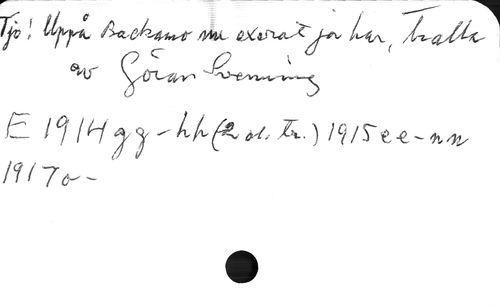 Tjo! Uppå Backamo nu exerat jor har, tralla
av Göran Svenning
E 1914 gg-hh (2 ol. tr.) 1915 ee-nn
1917 o-